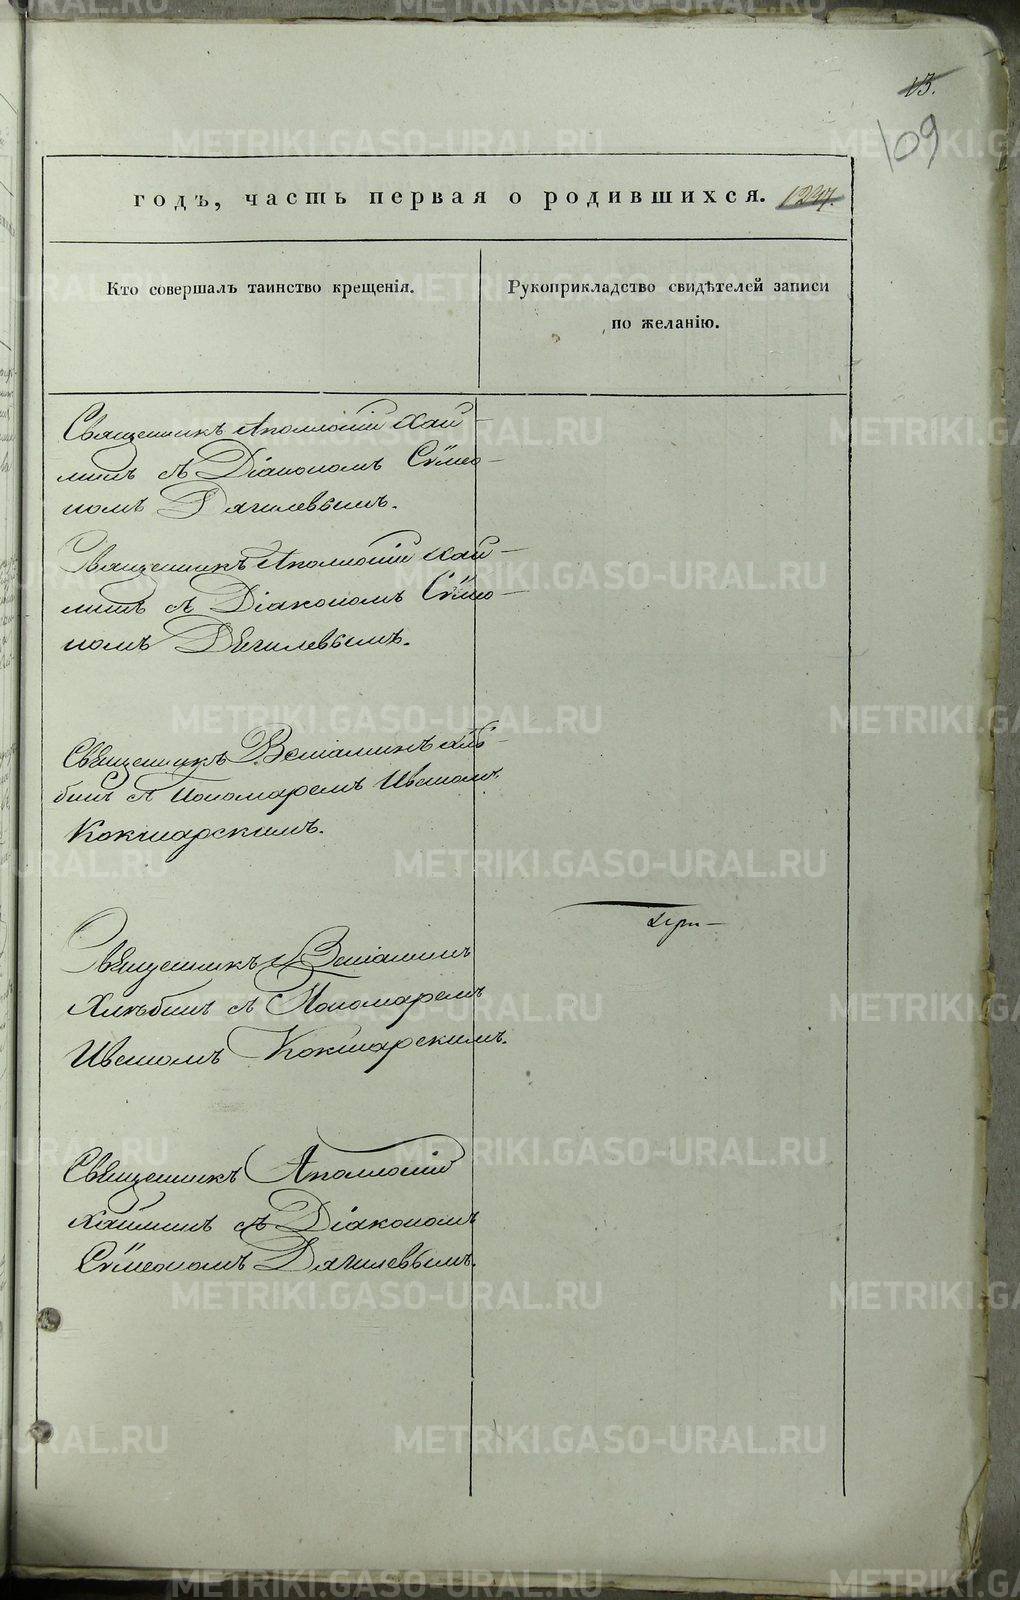 13.
109
годъ, часть первая о родившихся. 1237.
Кто совершалъ таинство крещенія.
Рукоприкладство свидѣтелей записи
по желанію.
Священникъ Аполлоній Хай-
минъ съ Діакономъ Сѵмео-
номъ Дягилевымъ.
Священникъ Аполлоній Хай-
минъ съ Діакономъ Сѵмео-
номъ Дягилевымъ.
Священникъ Веніаминъ Хлѣ-
бинъ съ Пономаремъ Иваномъ
Кокшарскимъ.
Священникъ Веніаминъ
Хлѣбинъ съ Пономаремъ
Иваномъ Кокшарскимъ.
Священникъ Аполлоній
Хайминъ съ Діакономъ
Сѵмеономъ Дягилевымъ.
METRIKI.GASO-URAL.RU